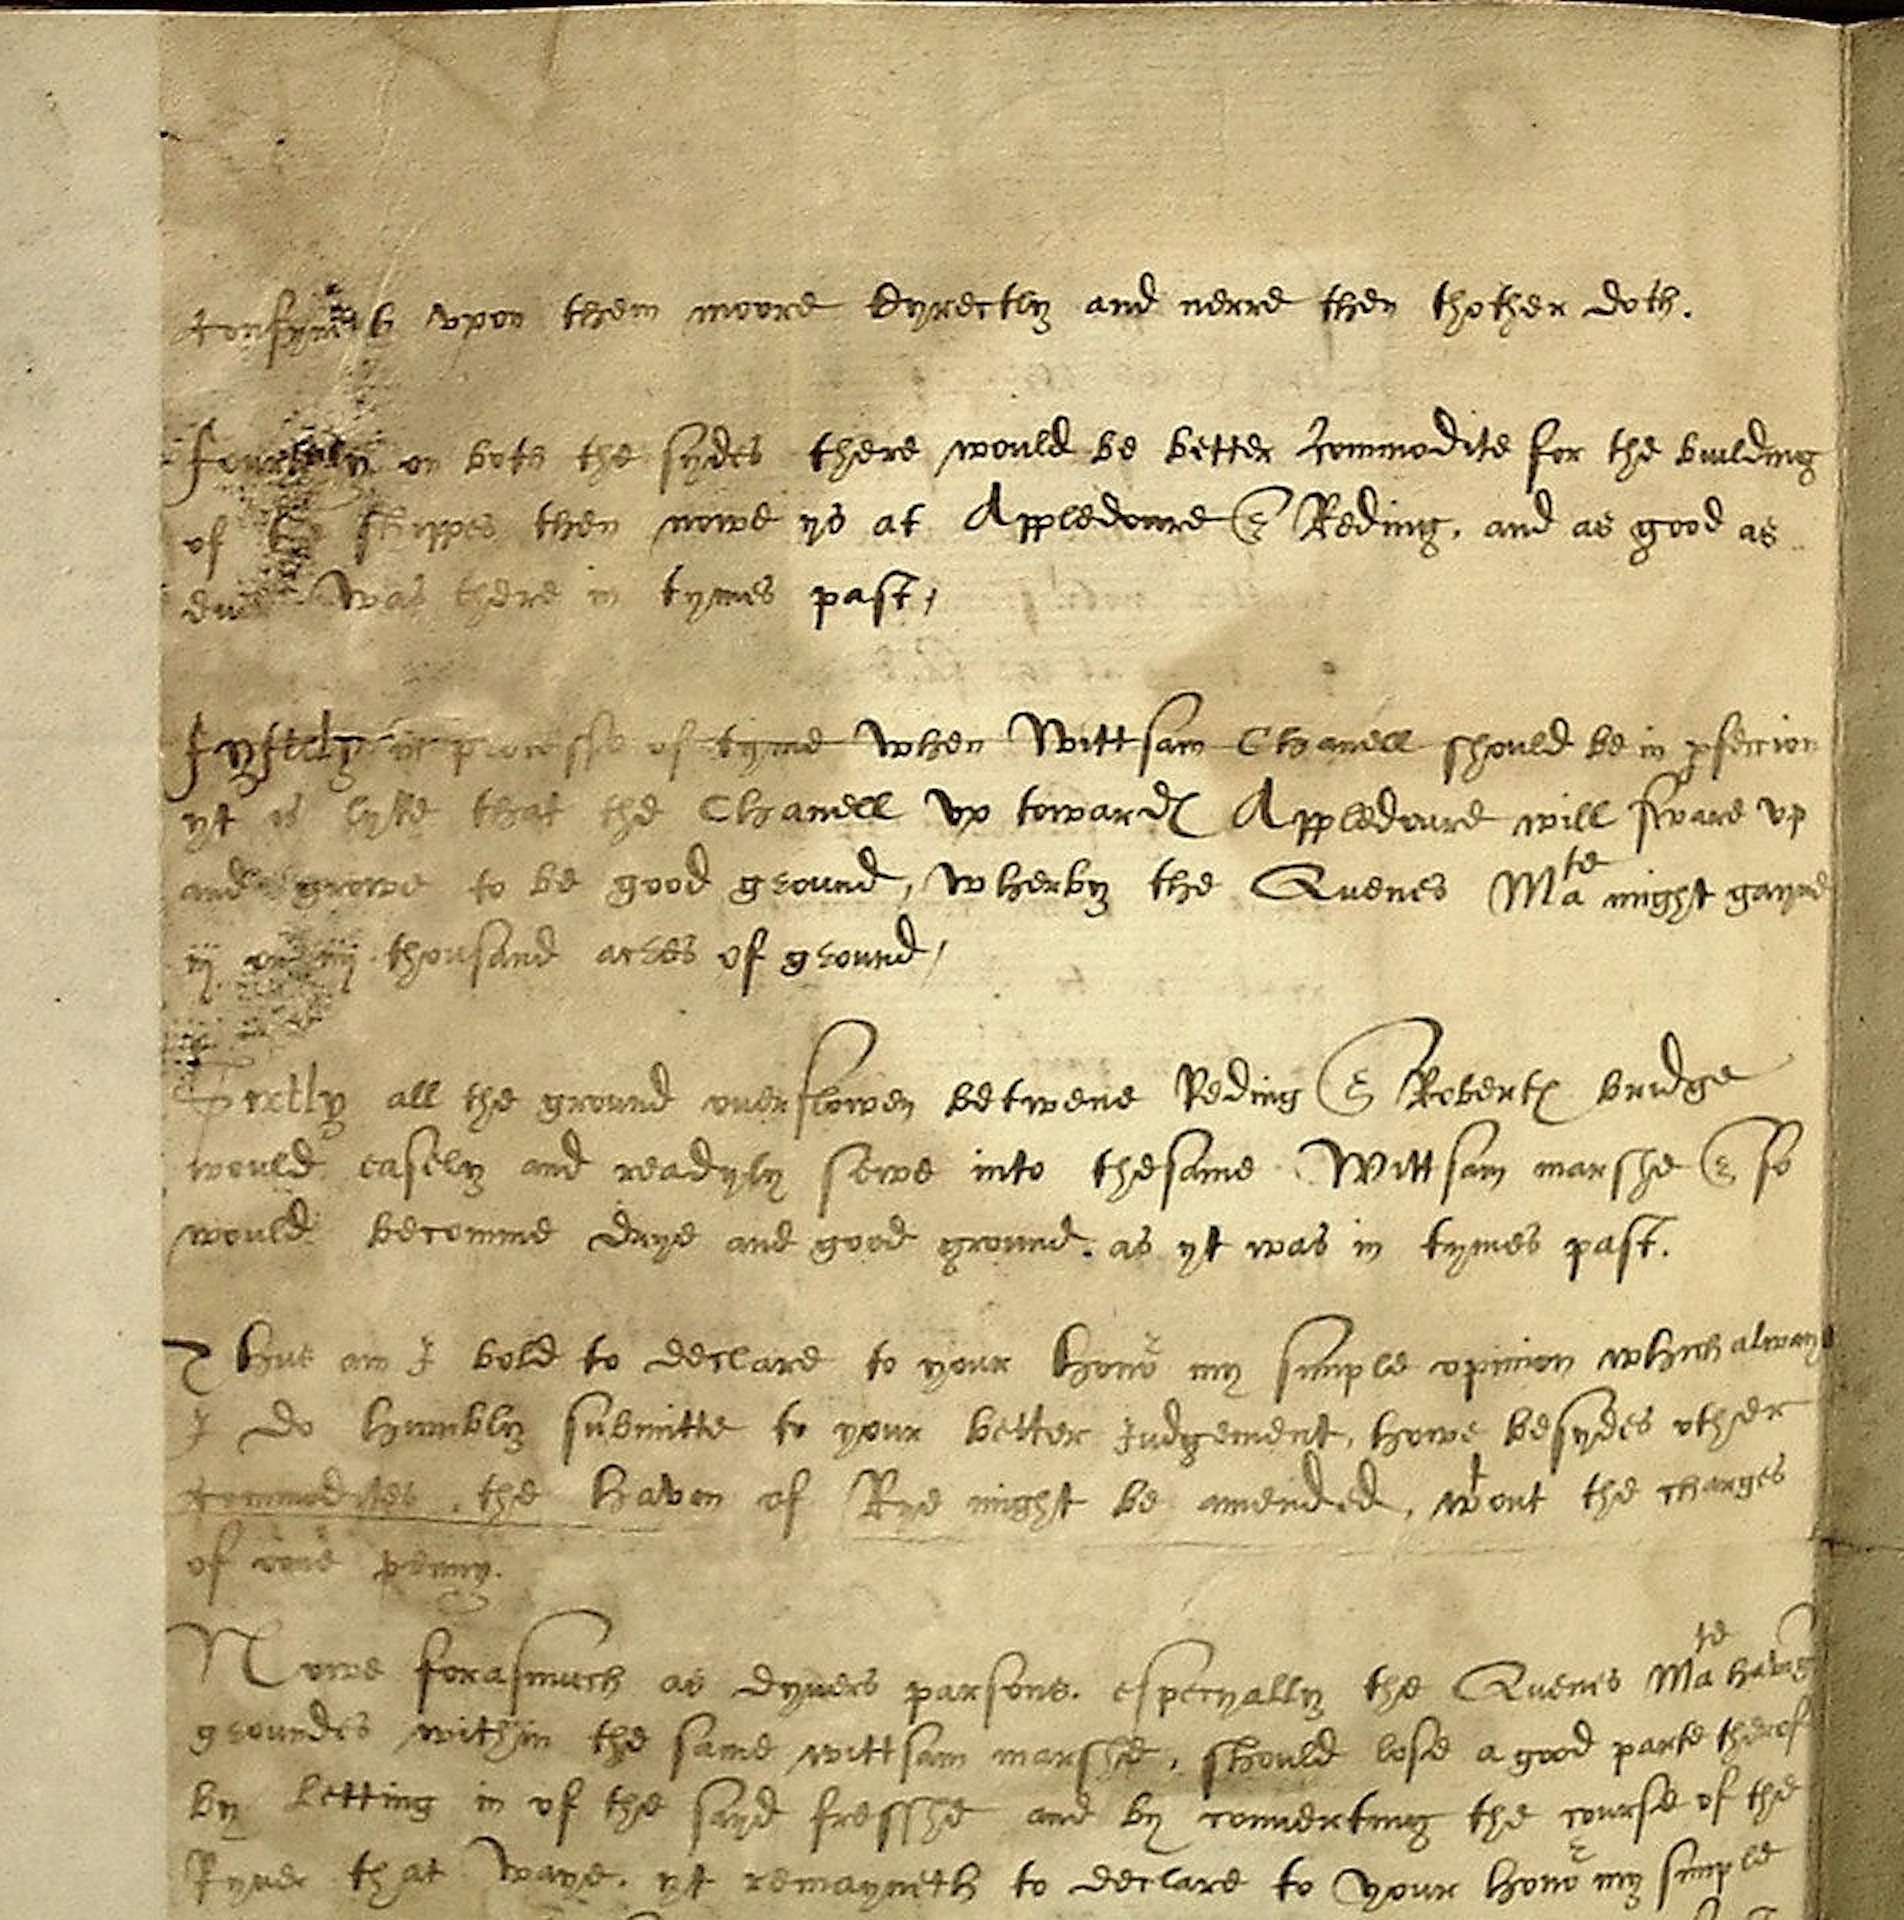 upon them moore dyrectly and nerre then thother doth.
Fourthly on both the sydes there would be better commodite for the building
of shippes then nowe ys at Appledoure & Reding, and as good as
was there in tymes past,
Fyftely in processe of tyme when Wittsam Chanell should be in pfection
yt is lyke that the Chanell up toward℮ Appledoure will sware up
and growe to be good ground, wherby the Quenes Ma^te might gayne
iij or iiij thousand acres of ground,
Sextly all the ground overflowen betwene Reding & Robert℮ bridge
would easely and readyly sewe into thesame Wittsam marshe & so
would becomme drye and good ground. as yt was in tymes past.
Thus am I bold to declare to your hono^r my simple opinion which alway
I do humbly submitte to your better Judgement, howe besydes other
commodites, the haven of Rye might be amended, w^tout the charges
of one penny.
Nowe forasmuch as dyvers parsons. especyally the Quenes Ma^te having
groundes within the same wittsam marshe, should lose a good parte therof
by letting in of the sayd fresshe and by converting the course of the
Ryver that waye. yt remayneth to declare to your hono^r my simple